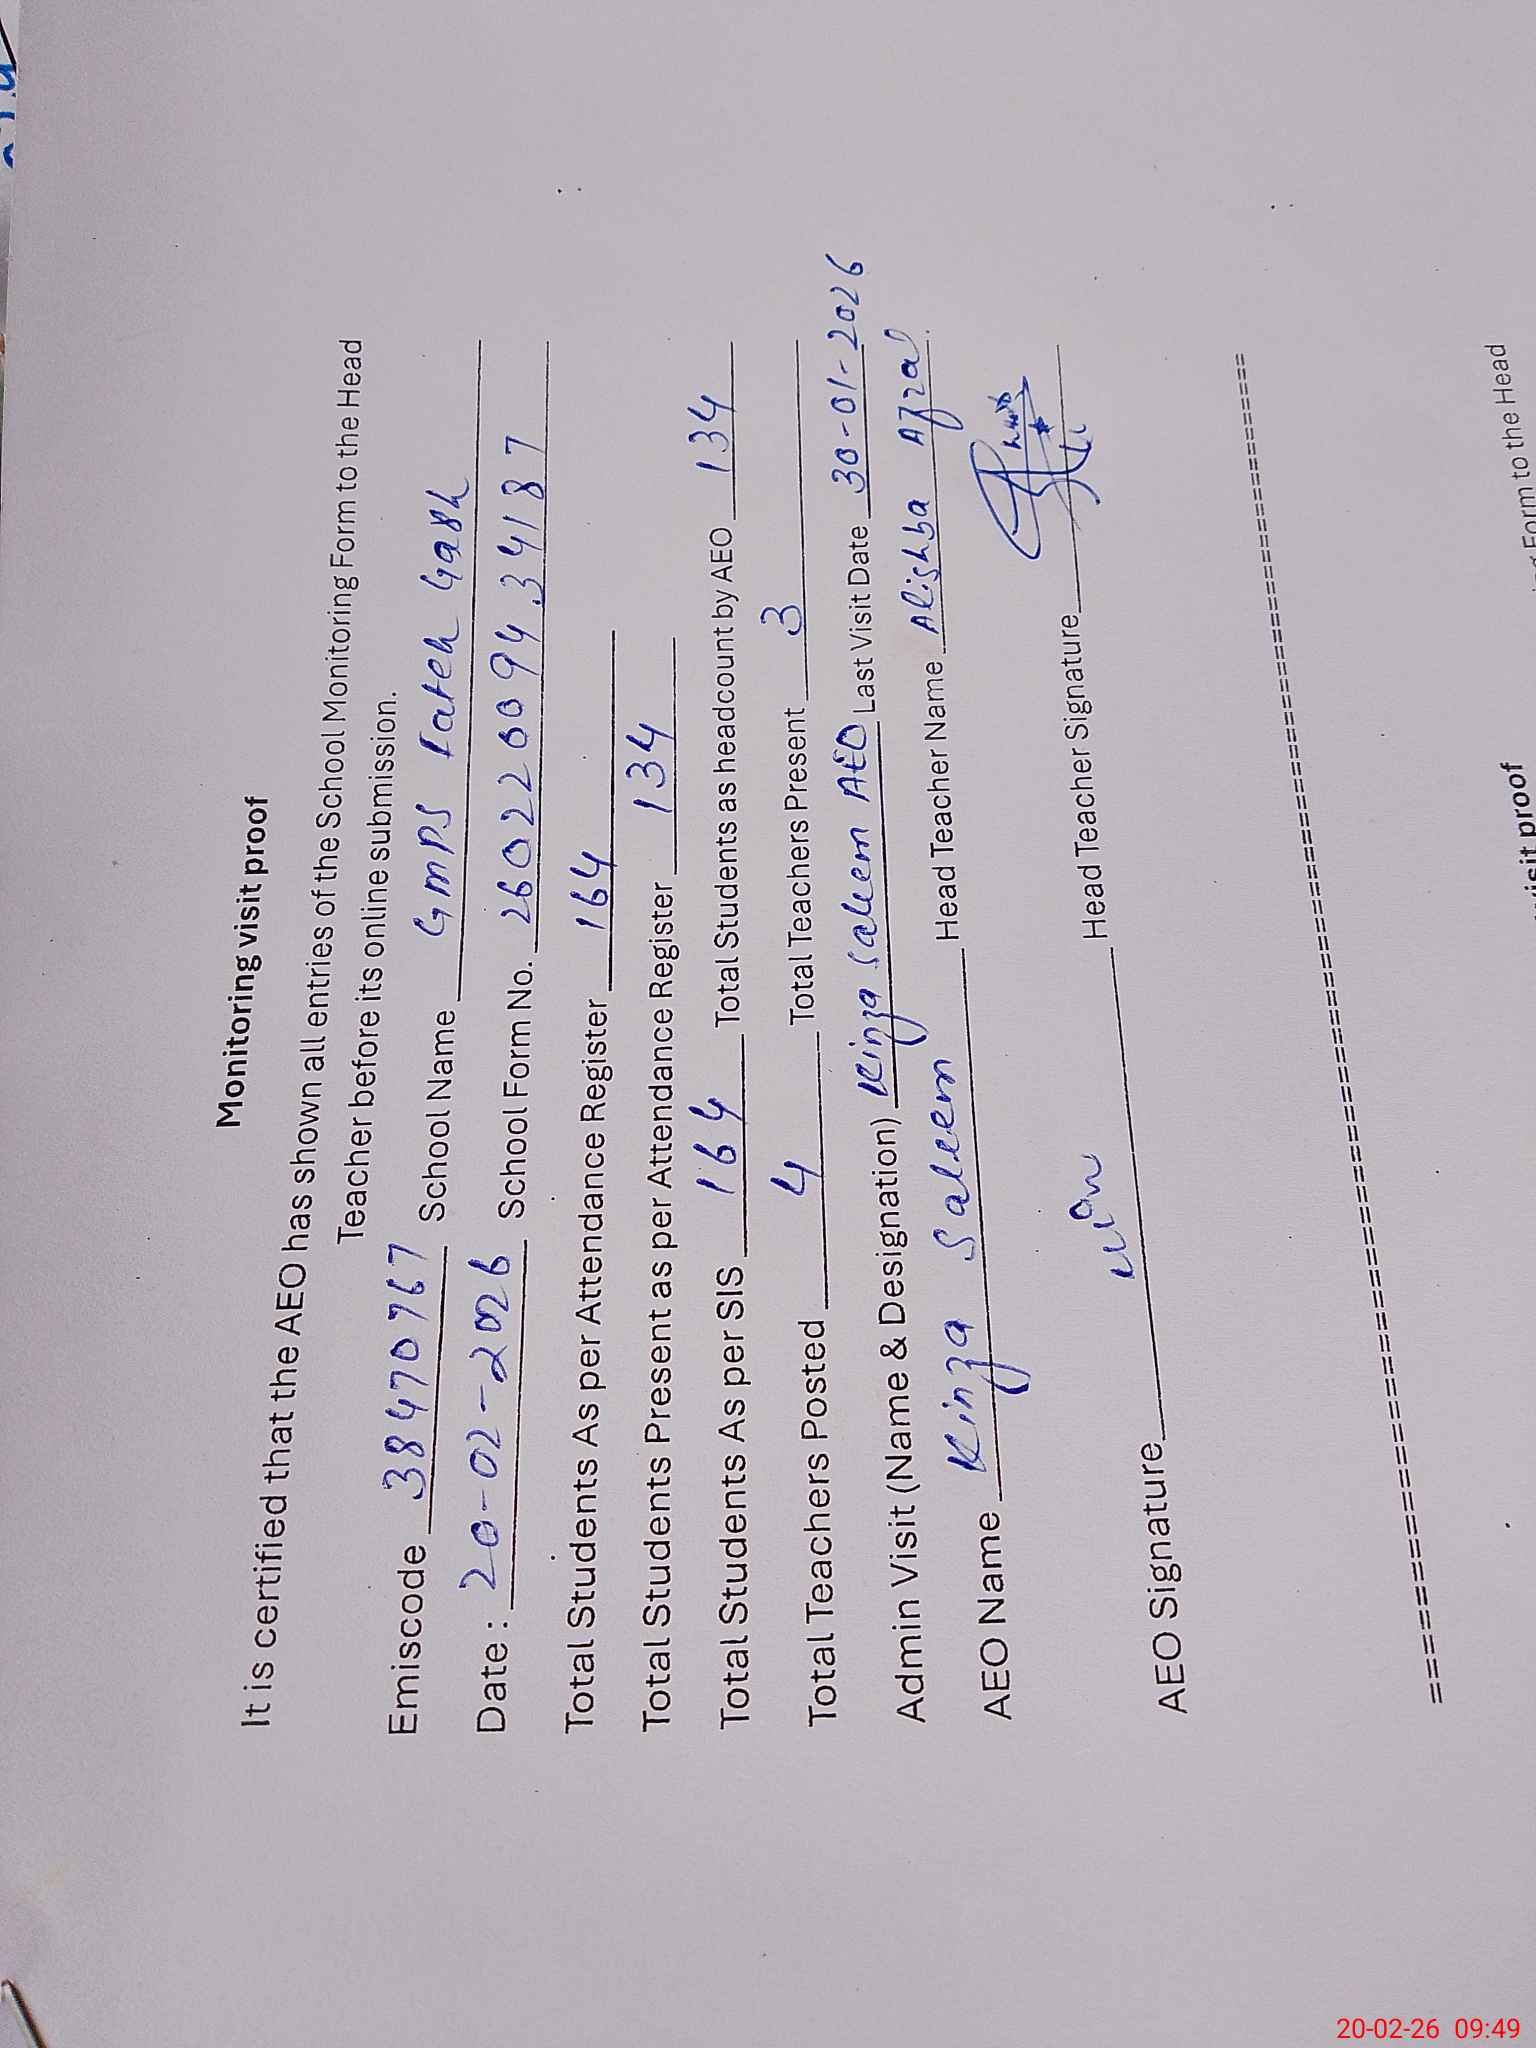 Monitoring visit proof
It is certified that the AEO has shown all entries of the School Monitoring Form to the Head
Teacher before its online submission.
Emiscode 38470767 School Name GMPS Fateh Garh
Date : 20-02-2026 School Form No. 2602200943 4187
Total Students As per Attendance Register 164
Total Students Present as per Attendance Register 134
Total Students As per SIS 164 Total Students as headcount by AEO 134
Total Teachers Posted 4 Total Teachers Present 3
Admin Visit (Name & Designation) Kinza Saleem AEO Last Visit Date 30-01-2026
AEO Name Kinza Saleem Head Teacher Name Alishba Afzal
AEO Signature Head Teacher Signature
visit proof
Form to the Head
20-02-26 09:49